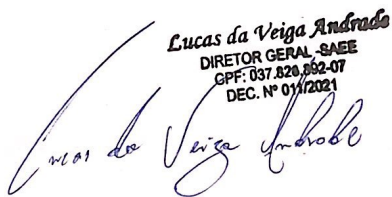 Lucas da Veiga Andrade
DIRETOR GERAL -SAEE
CPF: 037.820.892-07
DEC. Nº 011/2021
Lucas da Veiga Andrade